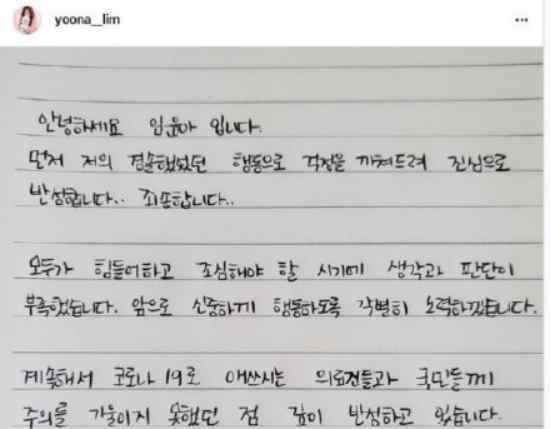 yoona__lim
안녕하세요 임윤아 입니다.
먼저 저의 경솔했었던 행동으로 걱정을 끼쳐드려 진심으로
반성합니다.. 죄송합니다..
모두가 힘들어하고 조심해야 할 시기에 생각과 판단이
부족했습니다. 앞으로 신중하게 행동하도록 각별히 노력하겠습니다.
계속해서 코로나19로 애쓰시는 의료진들과 국민들께
주의를 기울이지 못했던 점 깊이 반성하고 있습니다.